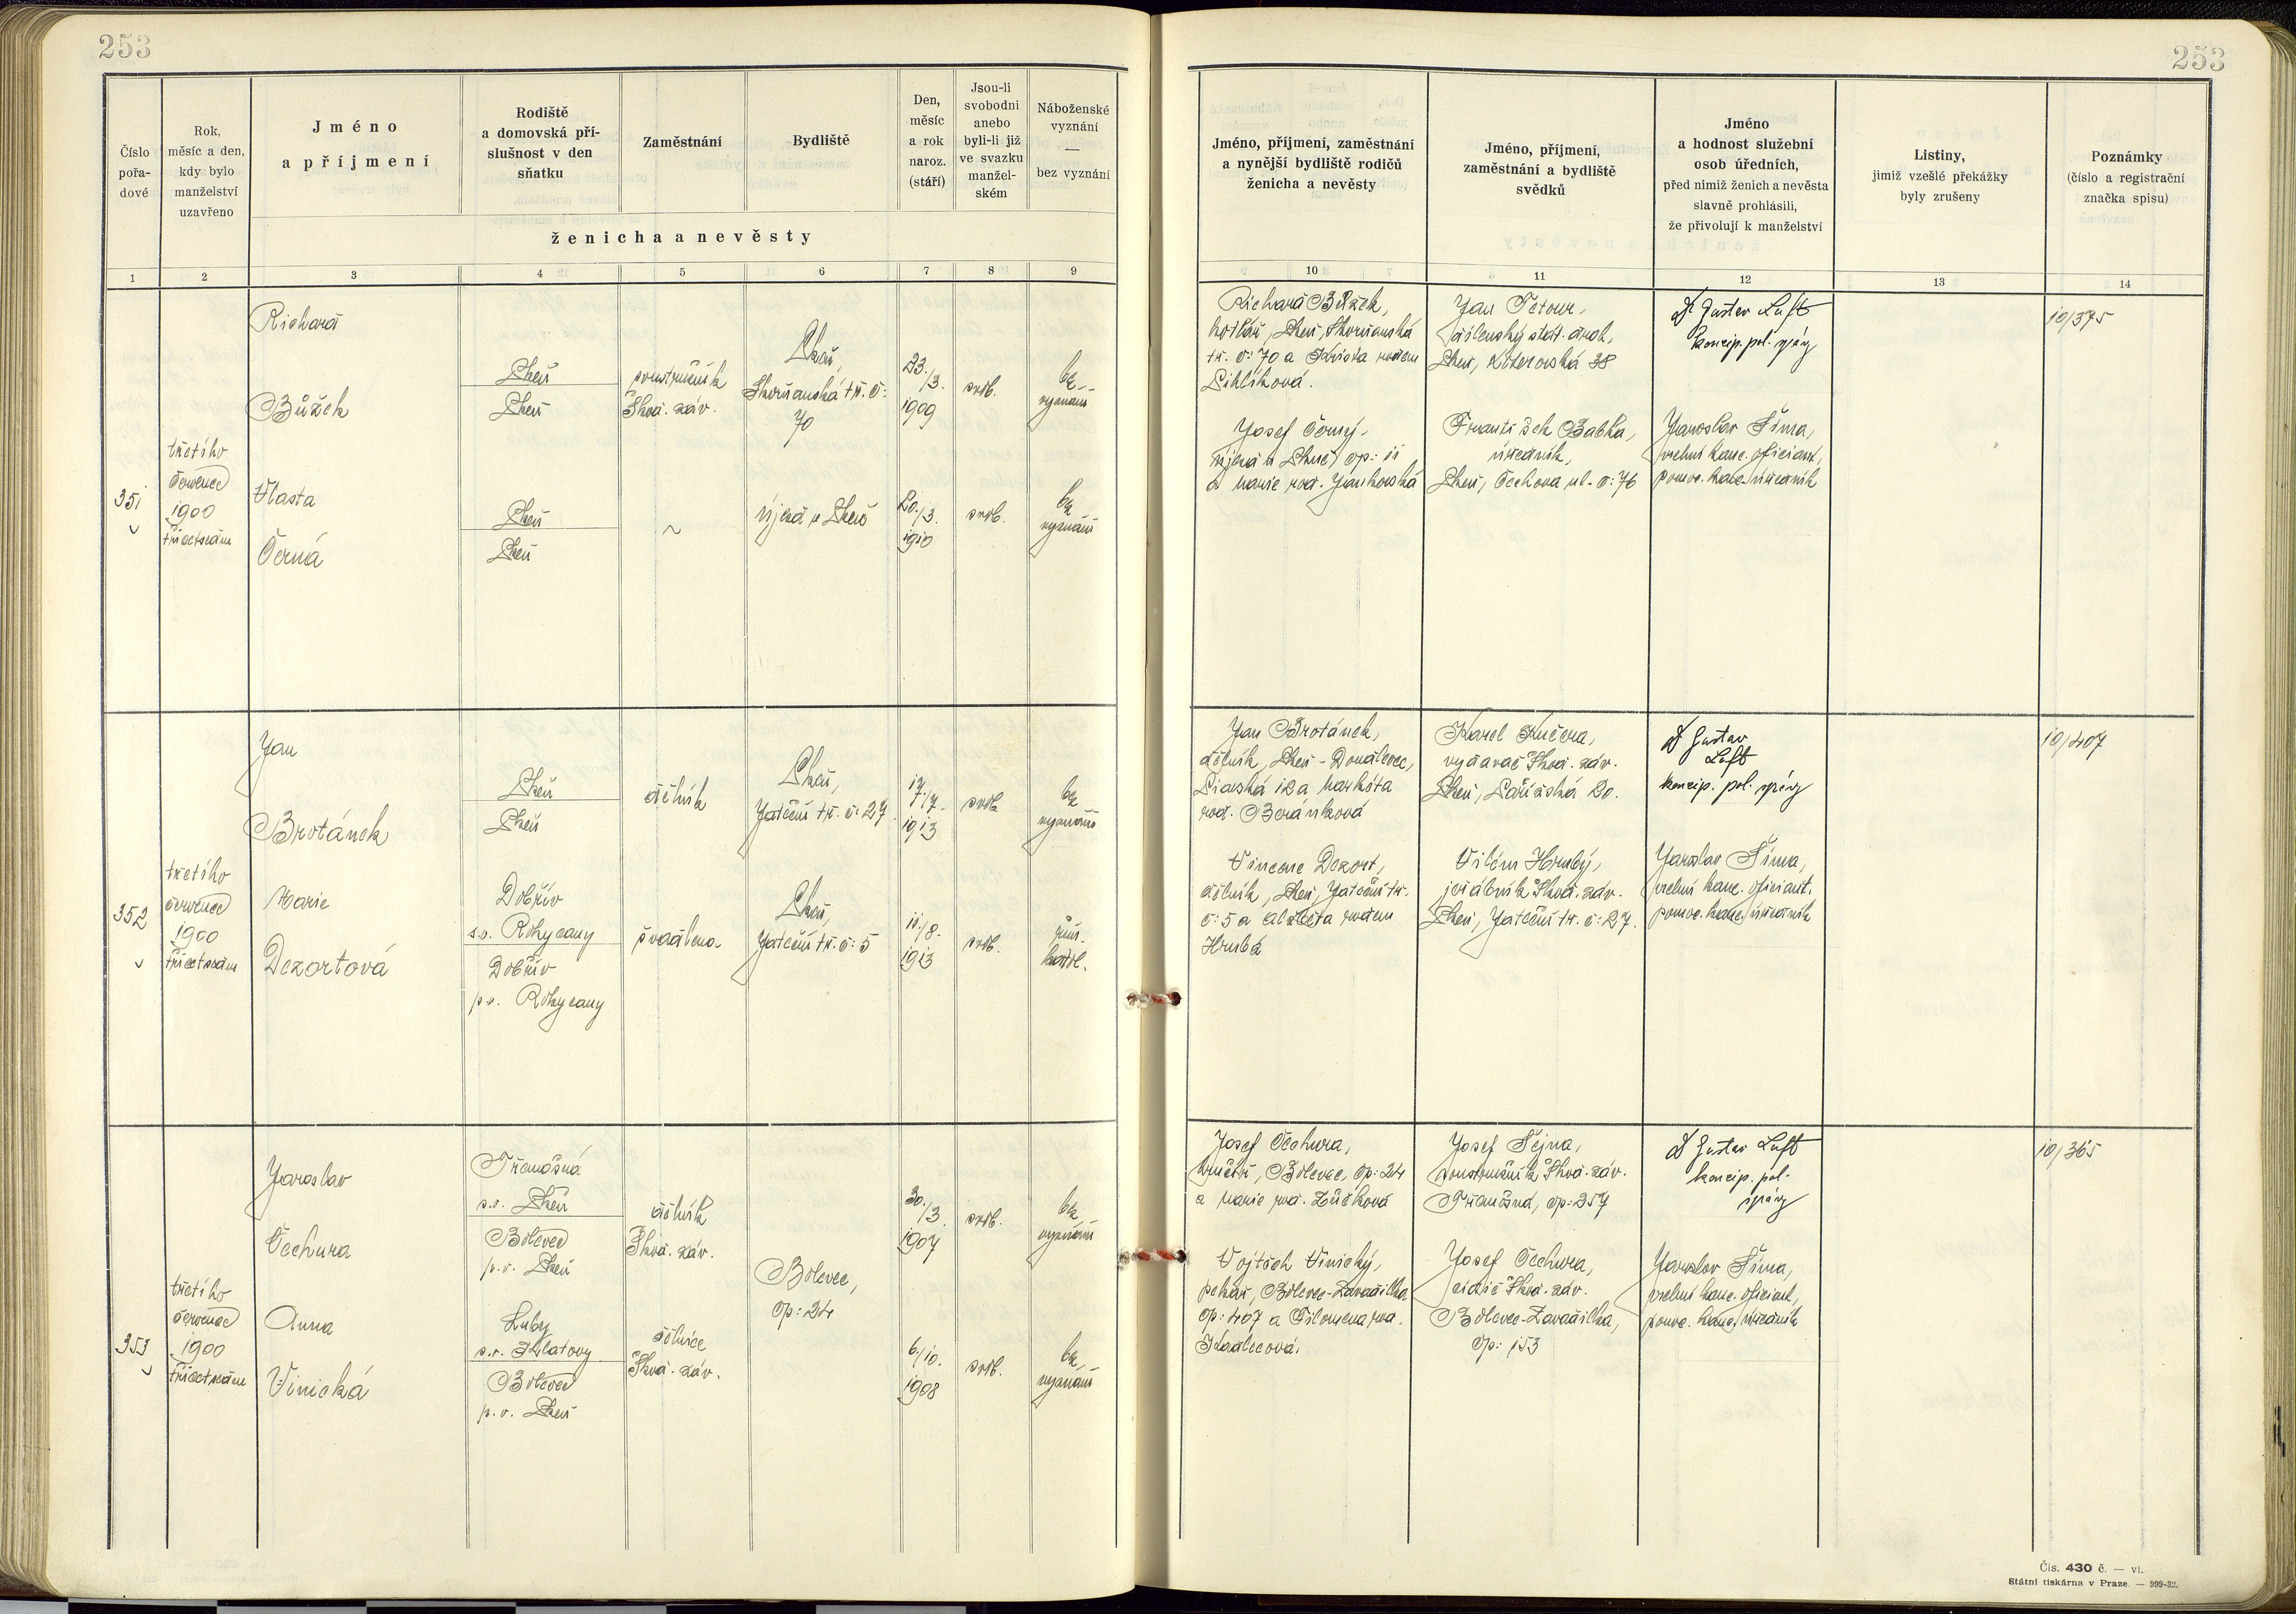 253
253
Číslo pořa-dové
Rok, měsíc a den, kdy bylo manželství uzavřeno
Jméno a příjmení
Rodiště a domovská pří-slušnost v den sňatku
Zaměstnání
Bydliště
Den, měsíc a rok naroz. (stáří)
Jsou-li svobodni anebo byli-li již ve svazku manžel-ském
Náboženské vyznání — bez vyznání
ženicha a nevěsty
Jméno, příjmení, zaměstnání a nynější bydliště rodičů ženicha a nevěsty
Jméno, příjmení, zaměstnání a bydliště svědků
Jméno a hodnost služební osob úředních, před nimiž ženich a nevěsta slavně prohlásili, že přivolují k manželství
Listiny, jimiž vzešlé překážky byly zrušeny
Poznámky (číslo a registrační značka spisu)
1 2 3 4 5 6 7 8 9 10 11 12 13 14
351
třetího
červenec
1900
třicetsedm
Richard
Bůžek
Plzeň
Plzeň
soustružník
Škod. záv.
Plzeň,
Skvrňanská tř. č:
70
23./3.
1909
svob.
bez
vyznání
Vlasta
Černá
Plzeň
Plzeň
~
Újezd u Plzně
20./3.
1910
svob.
bez
vyznání
Richard Bůžek,
kotlář, Plzeň, Skvrňanská
tř. č: 70 a
rodem
Josef Černý,
Újezd u Plzně, čp: 11
a Marie roz. Jankovská
Jan Tetour,
dílenský stát. drah,
Plzeň, 38
František Babka,
úředník,
Plzeň, Čechova ul. č: 76
Dr Gustav Luft
koncip. pol. správy
Jaroslav Šíma,
vrchní kanc. oficiant,
pomoc. kanc. úředník
10/375
352
třetího
červenec
1900
třicetsedm
Jan
Brotánek
Plzeň
Plzeň
dělník
Plzeň,
Jateční tř. č: 27
17./7.
1913
svob.
bez
vyznání
Marie
Dezortová
Dobřív
s.o. Rokycany
Dobřív
p.o. Rokycany
švadlena
Plzeň,
Jateční tř. č: 5
11./8.
1913
svob.
řím.
katol.
Jan Brotánek,
dělník, Plzeň - Doudlevec,
12 a Markéta
roz. Beránková
Vincenc Dezort,
dělník, Plzeň, Jateční tř.
č: 5 a Alžběta rodem
Hrubá
Karel Kučera,
vydavač Škod. záv.
Plzeň, Pařížská 20.
Vilém Hrubý,
jeřábník Škod. záv.
Plzeň, Jateční tř. č: 27.
Dr Gustav
Luft
koncip. pol. správy
Jaroslav Šíma,
vrchní kanc. oficiant.
pomoc. kanc. úředník
10/407
353
třetího
červenec
1900
třicetsedm
Jaroslav
Čechura
Třemošná
s.o. Plzeň
Bolevec
p.o. Plzeň
dělník
Škod. záv.
Bolevec,
čp: 24
30./3.
1907
svob.
bez
vyznání
Anna
Vinická
Luby
s.o. Klatovy
Bolevec
p.o. Plzeň
dělnice
Škod. záv.
6./10.
1908
svob.
bez
vyznání
Josef Čechura,
Bolevec, čp: 24
a Marie roz.
Vojtěch Vinický,
pekař, Bolevec-Zavadilka
čp: 407 a Filomena roz.
Kadlecová.
Josef Šejna,
soustružník Škod. záv.
Třemošná, čp: 257
Josef Čechura,
cidič Škod. záv.
Bolevec-Zavadilka,
čp: 153
Dr Gustav Luft
koncip. pol.
správy
Jaroslav Šíma,
vrchní kanc. oficiant,
pomoc. kanc. úředník
10/365
Čís. 430 č. — vl.
Státní tiskárna v Praze. — 999-32.